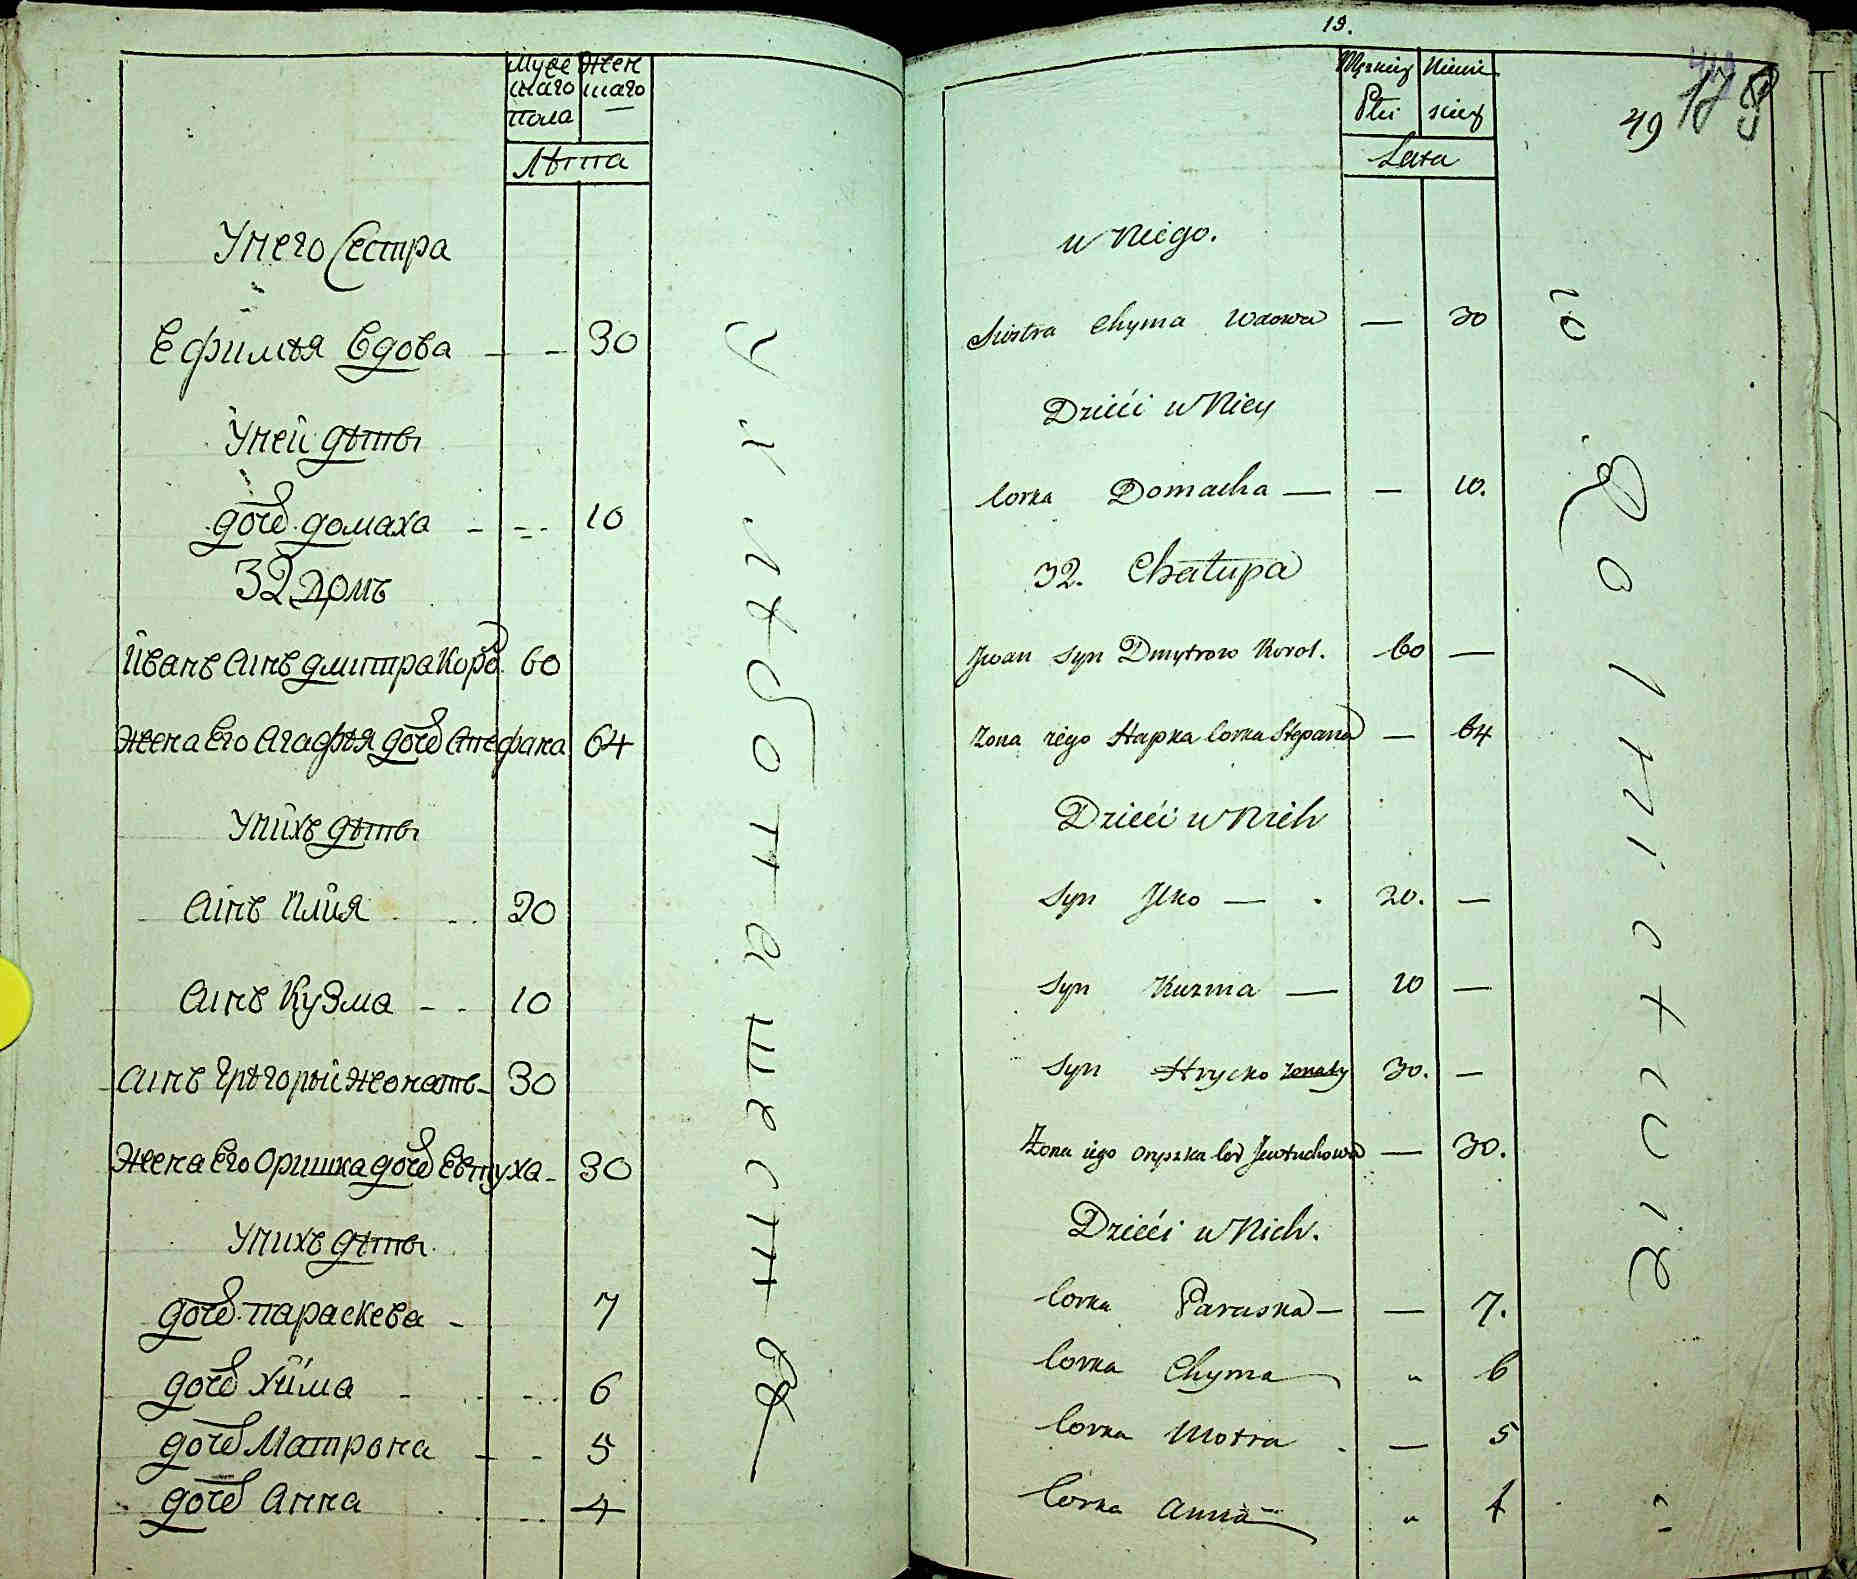 Муже Жен
скаго скаго
пола
Лѣта
У него Сестра
Ефимѣя Вдова - - 30
У ней дѣты
дочь домаха - - - 10
32 домъ
Иванъ Синъ дмитра Коро 60
Жена Его Агафѣя дочь Стефана 64
У нихъ дѣты
Синъ Илия 20
Синъ Кузма - - 10
Синъ Грѣгорый жонатъ - 30
Жена Его Оришка дочь Евтуха - 30
У нихъ дѣты
дочь параскева - 7
дочь Хима - 6
дочь Матрона - - 5
дочь Анна 4
19.
Męzkiey Plci
Lata
49
u Niego.
Siostra Chyma Wdowa — 30
Dzieći u Niey
Corka Domacha — — 10.
32. Chałupa
Jwan Syn Dmytrow Korol. 60 —
Zona iego Hapka Corka Stepana — 64
Dzieći u Nich
Syn Jlko — . 20. —
Syn Kuzma — 10 —
Syn Hrycko zonaty 30. —
Zona iego Oryszka Cor Jewtuchowa — 30.
Dzieći u Nich.
Corka Paraska — — 7.
Corka Chyma „ 6
Corka Motra . — 5
Corka Anna „ 4